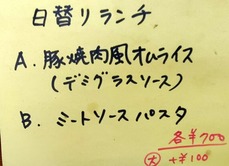 日替リランチ
A. 豚焼肉風オムライス
(デミグラスソース)
B. ミートソースパスタ
各¥700
大 +¥100